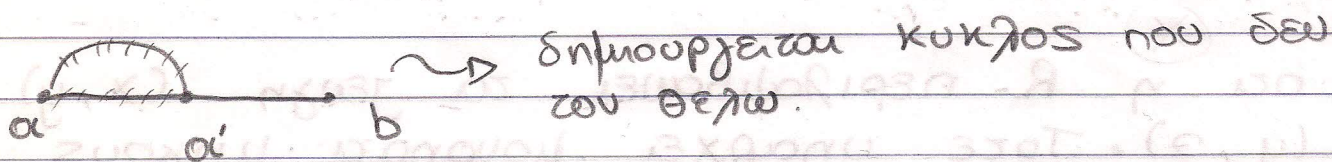 δημιουργειται κυκλος που δεν
τον θελω.
α α' b